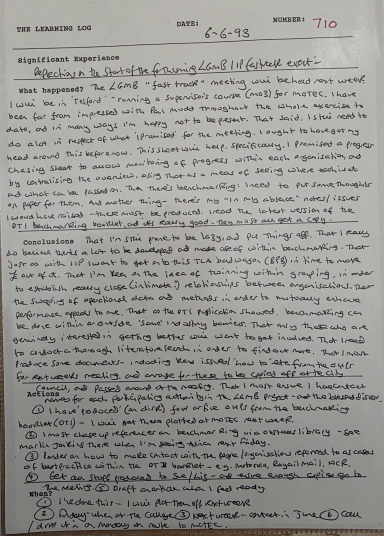 THE LEARNING LOG DATE: 6-6-93 NUMBER: 710
Significant Experience
Reflecting on the start of the forthcoming LGMB / IP fastrack event -
What happened? The LGMB "fast track" meeting will be held next week.
I will be in Telford - running a supervisors course (M03) for MOTEC. I have
been far from impressed with Paul Mudd throughout the whole exercise to
date, and in many ways I'm happy not to be present. That said, I still need to
do a lot in respect of what I promised for the meeting. I ought to have got my
head around this before now. This sheet will help. Specifically, I promised a progress
chasing sheet to allow monitoring of progress within each organisation, and
by centralising the overview, using that as a means of seeing where each is at
and what can be passed on. Then there's benchmarking: I need to put some thoughts
on paper for them. And another thing - there's my "in my absence" notes/issues
I would have raised - these must be produced. I read the latest version of the
DTI benchmarking booklet, and it's really good - they must all get a copy.
Conclusions That I'm still prone to be lazy, and put things off. That I really
do believe there's a lot to be developed and made use of within benchmarking. That
just as with IIP I want to get on to this bandwagon in time to make
£ out of it. That I'm keen on the idea of twinning within grouping, in order
to establish really close (intimate?) relationships between organisations. That
the swapping of operational data and methods in order to mutually enhance
performance appeals to me. That as the DTI publication showed, benchmarking can
be done within or outside 'same' industry barriers. That only those who are
genuinely interested in getting better will want to get involved. That I need
to conduct a thorough literature search in order to find out more. That I must
produce some documents - including key issues
for next week's meeting, and arrange for these to be copied off at the City
Council, and passed around at the meeting. That I must ensure I have contact
names for each participating authority in the LGMB project - and the
Actions
① I have produced (on disk) four or five OHPs from the benchmarking
booklet (DTI) - I will get these plotted at MOTEC next week
② I must chase up references on benchmarking via a business library - see
Martin Jenkins there when I'm seeing next Friday.
③ Ponder on how to make contact with the people/organisations referred to as cases
of best practice within the DTI booklet - e.g. Motorola, Royal Mail, NCR.
④ Get all stuff produced to - and ensure enough copies go to
the meeting. ⑤ Draft an article when I feel ready
When?
① I've done this - I will plot them off next week
② Friday when at the College ③ Next week - contact in June ④ Can
drop it in on Monday en route to MOTEC.